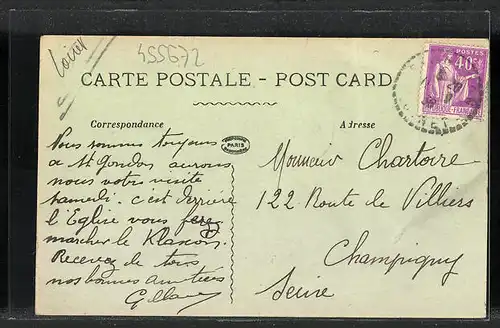 Loiret
455672
CARTE POSTALE - POST CARD
POSTES
40c
Correspondance
Adresse
PARIS
Vous sommes toujours
a St Gondon aurons
nous votre visite
samedi. c'est derrière
l'Eglise vous ferez
marcher le Klaxon.
Recevez de tous
nos bonnes amitiés
Monsieur Chartoire
122 Route de Villiers
Champigny
Seine